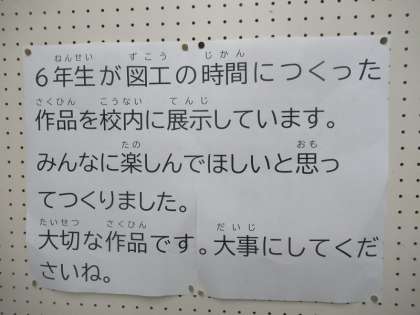 ねんせい ずこう じかん
6年生が図工の時間につくった
さくひん こうない てんじ
作品を校内に展示しています。
たの おも
みんなに楽しんでほしいと思っ
てつくりました。
たいせつ さくひん だいじ
大切な作品です。大事にしてくだ
さいね。